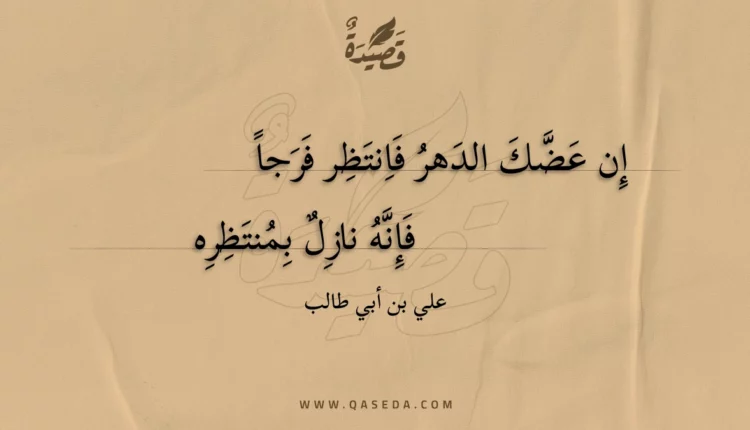 قَصِيدَةٌ
إِن عَضَّكَ الدَهرُ فَاِنتَظِر فَرَجاً
فَإِنَّهُ نازِلٌ بِمُنتَظِرِه
علي بن أبي طالب
WWW.QASEDA.COM